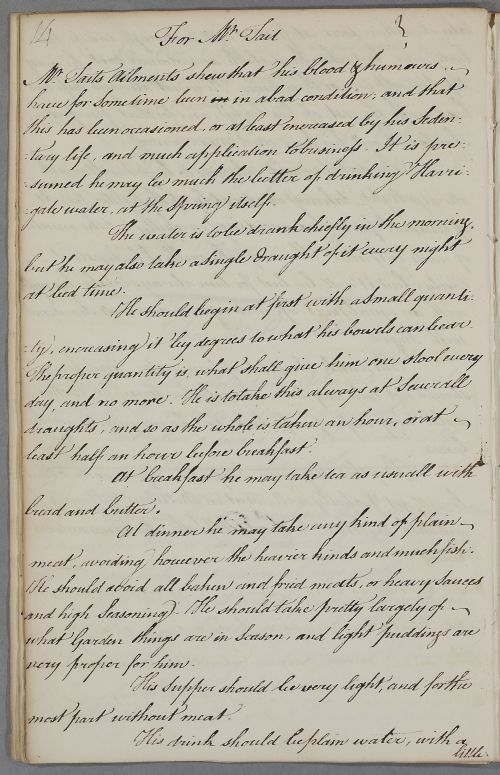 14
For Mr. Tait
Mr. Taits Ailments shew that his blood & humours
have for sometime been in in a bad condition, and that
this has been occasioned, or at least encreased by his Seden-
-tary life, and much application to business. It is pre-
-sumed he may be much the better of drinking Harri-
-gate water, at the Spring itself.
The water is to be drank chiefly in the morning,
but he may also take a single draught of it every night
at bed time.
He should begin at first with a small quanti-
-ty, encreasing it by degrees to what his bowels can bear.
The proper quantity is, what shall give him one stool every
day, and no more. He is to take this always at Severall
draughts, and so as the whole is taken an hour, or at
least half an hour before breakfast.
At breakfast he may take tea as usuall with
bread and butter.
At dinner he may take any kind of plain
meat, avoiding however the heavier kinds and much fish.
He should avoid all baken and fried meats, or heavy Sauces
and high Seasoning. He should take pretty largely of
what Garden things are in Season, and light puddings are
very proper for him.
His Supper should be very light, and for the
most part without meat.
His drink should be plain water, with a
little